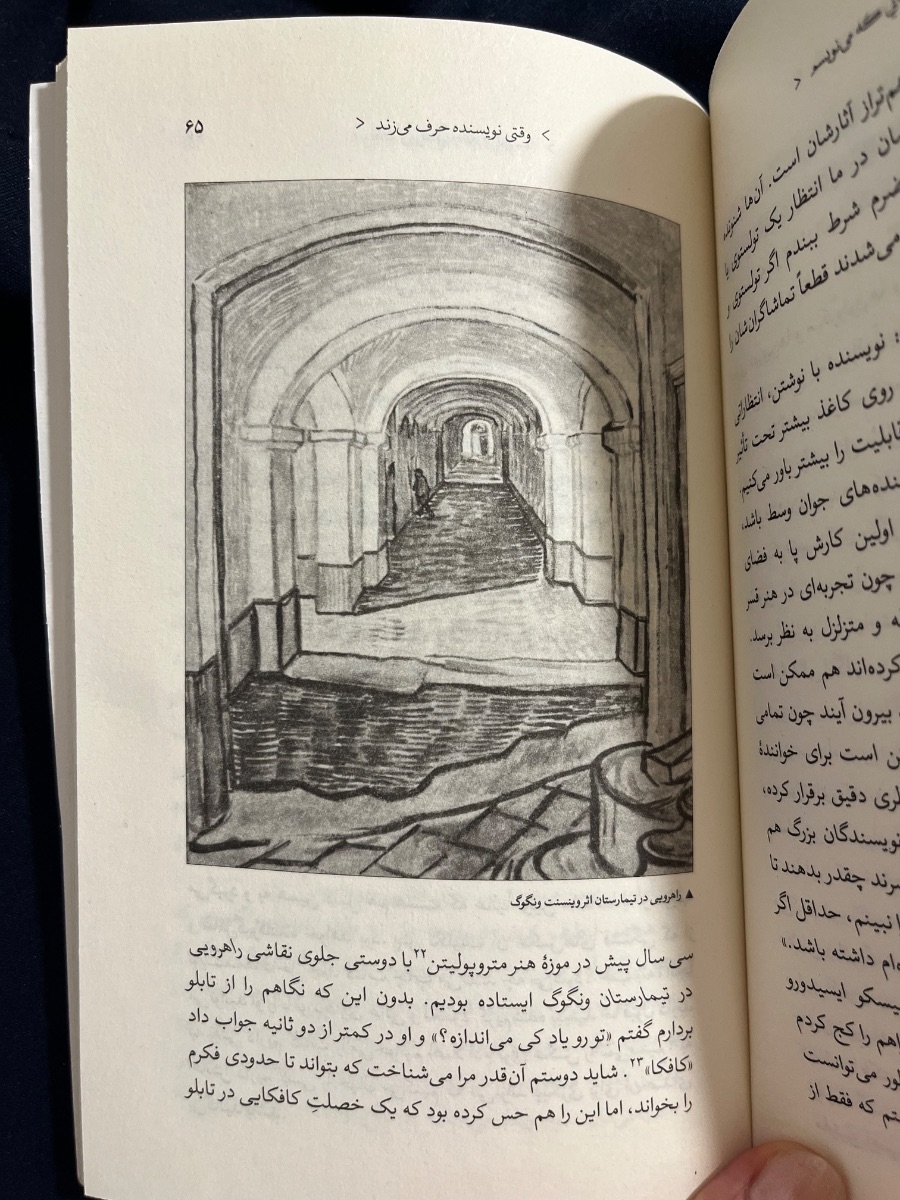 که می‌نویسم >
هم‌تراز آثارشان است. آن‌ها شنونده
در ما انتظار یک تولستوی یا
شرط ببندم اگر تولستوی و
می‌شدند قطعاً تماشاگران‌شان را
: نویسنده با نوشتن، انتظاراتی
روی کاغذ بیشتر تحت تأثیر
قابلیت را بیشتر باور می‌کنیم.
نده‌های جوان وسط باشد،
اولین کارش پا به فضای
چون تجربه‌ای در هنر قسر
و متزلزل به نظر برسد.
کرده‌اند هم ممکن است
بیرون آیند چون تمامی
است برای خوانندهٔ
دقیق برقرار کرده،
نویسندگان بزرگ هم
چقدر بدهند تا
نبینم، حداقل اگر
داشته باشد.»
یسکو ایسیدورو
اهم را کج کردم
می‌توانست
که فقط از
< وقتی نویسنده حرف می‌زند > ۶۵
▲ راهرویی در تیمارستان اثر وینسنت ونگوگ
سی سال پیش در موزهٔ هنر متروپولیتن۲۲ با دوستی جلوی نقاشی راهرویی
در تیمارستان ونگوگ ایستاده بودیم. بدون این که نگاهم را از تابلو
بردارم گفتم «تو رو یاد کی می‌اندازه؟» و او در کمتر از دو ثانیه جواب داد
«کافکا»۲۳. شاید دوستم آن‌قدر مرا می‌شناخت که بتواند تا حدودی فکرم
را بخواند، اما این را هم حس کرده بود که یک خصلتِ کافکایی در تابلو